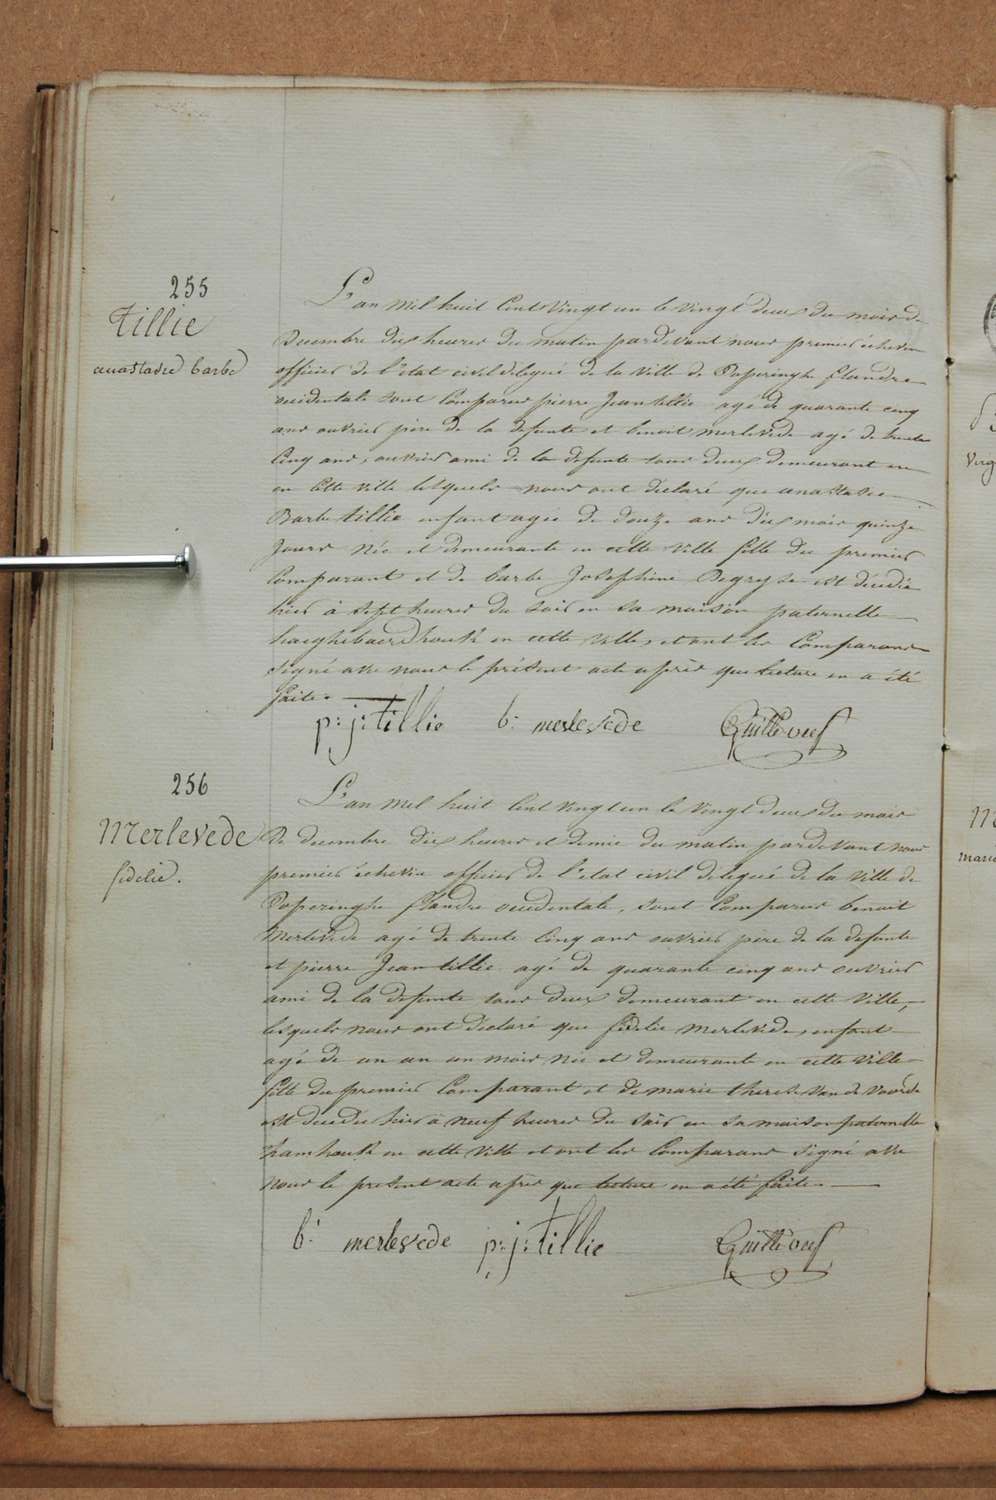 255
Tillie
anastasie barbe
L'an mil huit cent vingt un le vingt deux du mois de
Decembre dix heures du matin pardevant nous premier echevin
officier de l'état civil delegué de la ville de Poperinghe flandre
occidentale sont comparus pierre Jean tillie agé de quarante cinq
ans ouvrier père de la defunte et benoit merlevede agé de trente
cinq ans, ouvrier ami de la defunte tous deux demeurant en
en cette ville lesquels nous ont déclaré que anastasie
Barbe tillie enfant agée de douze ans dix mois quinze
jours née et demeurante en cette ville fille du premier
comparant et de barbe Josephine Degryse est décédée
hier à sept heures du soir en sa maison paternelle
en cette ville, et ont les comparans
signé avec nous le présent acte après que lecture en a été
faite.
p: j: tillie b: merlevede
256
Merlevede
fidelie.
L'an mil huit cent vingt un le vingt deux du mois
de decembre dix heures et demie du matin pardevant nous
premier échevin officier de l'état civil delegué de la ville de
Poperinghe flandre occidentale, sont comparus benoit
Merlevede agé de trente cinq ans ouvrier père de la defunte
et pierre Jean tillie agé de quarante cinq ans ouvrier
ami de la defunte tous deux demeurant en cette ville,
lesquels nous ont déclaré que fidelie merlevede, enfant
agé de un an un mois née et demeurante en cette ville
fille du premier comparant et de marie therese Van de Voorde
est décédée hier à neuf heures du soir en sa maison paternelle
en cette ville et ont les comparans signé avec
nous le present acte après que lecture en a été faite.
b: merlevede p: j: tillie